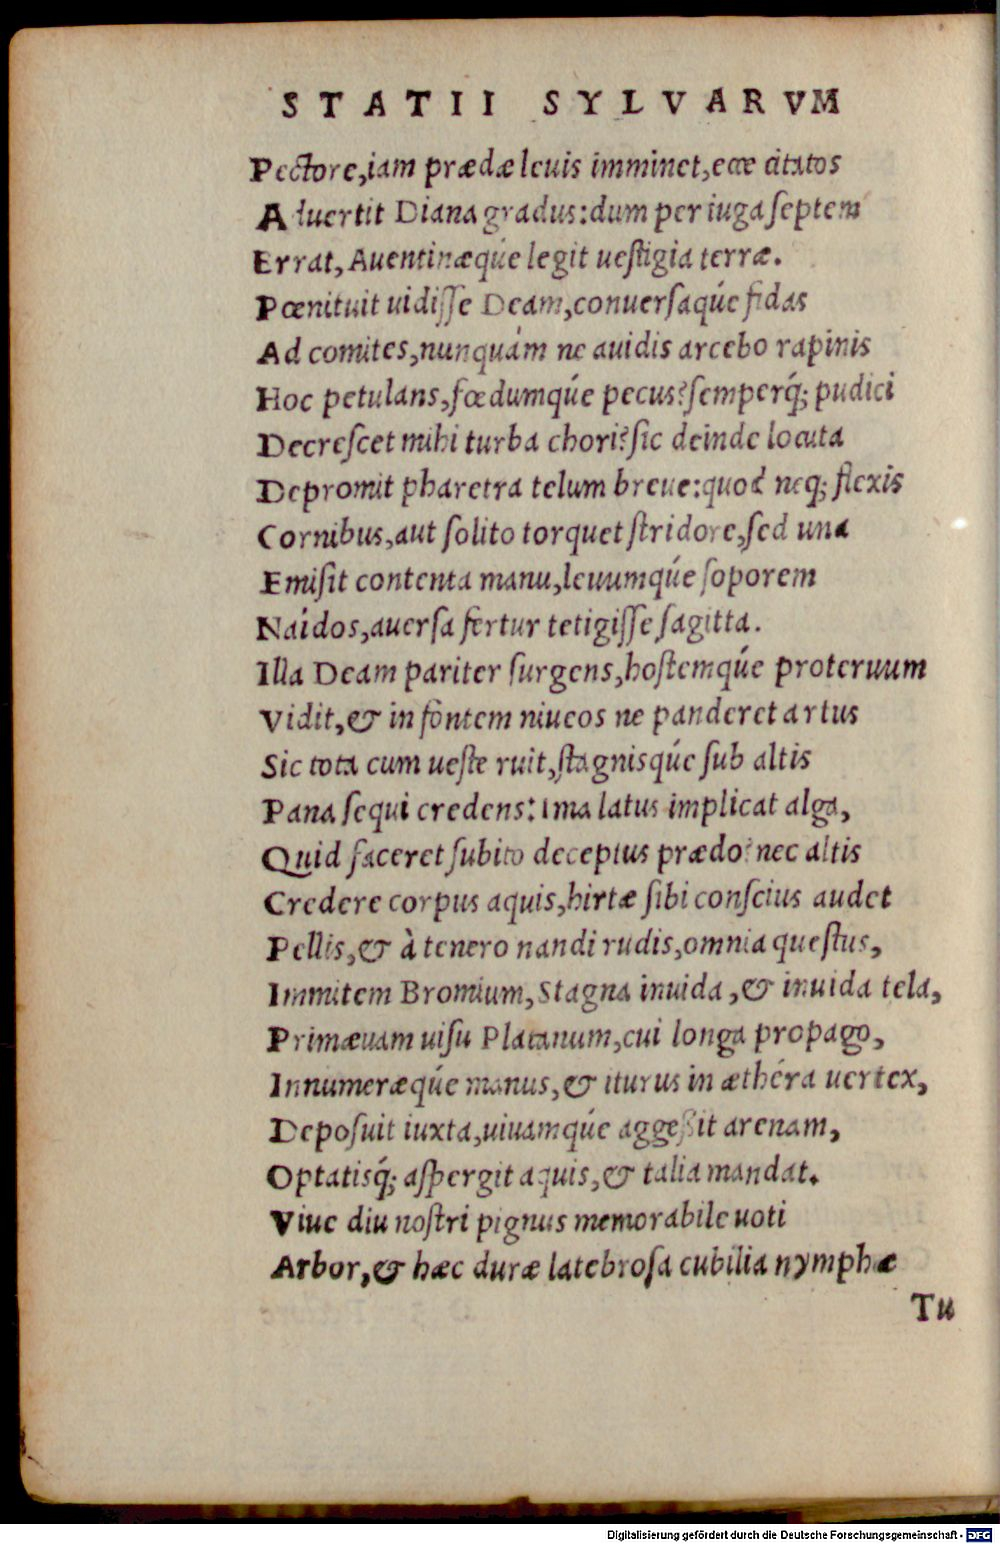 STATII SYLVARVM
Pectore, iam prædæ leuis imminet, ecce citatos
Aduertit Diana gradus: dum per iuga septem
Errat, Auentinæqúe legit uestigia terræ.
Pœnituit uidisse Deam, conuersaqúe fidas
Ad comites, nunquám ne auidis arcebo rapinis
Hoc petulans, fœdumqúe pecus? semperq́; pudici
Decrescet mihi turba chori? sic deinde locuta
Depromit pharetra telum breue: quod neq; flexis
Cornibus, aut solito torquet stridore, sed una
Emisit contenta manu, leuumqúe soporem
Naídos, auersa fertur tetigisse sagitta.
Illa Deam pariter surgens, hostemqúe proteruum
Vidit, & in fontem niueos ne panderet artus
Sic tota cum ueste ruit, stagnisqúe sub altis
Pana sequi credens: ima latus implicat alga,
Quid faceret subito deceptus prædo? nec altis
Credere corpus aquis, hirtæ sibi conscius audet
Pellis, & à tenero nandi rudis, omnia questus,
Immitem Bromium, Stagna inuida, & inuida tela,
Primæuam uisu Platanum, cui longa propago,
Innumeræqúe manus, & iturus in æthéra uertex,
Deposuit iuxta, uiuamqúe aggeßit arenam,
Optatisq́; aspergit aquis, & talia mandat.
Viue diu nostri pignus memorabile uoti
Arbor, & hæc duræ latebrosa cubilia nymphæ
Tu
Digitalisierung gefördert durch die Deutsche Forschungsgemeinschaft - DFG